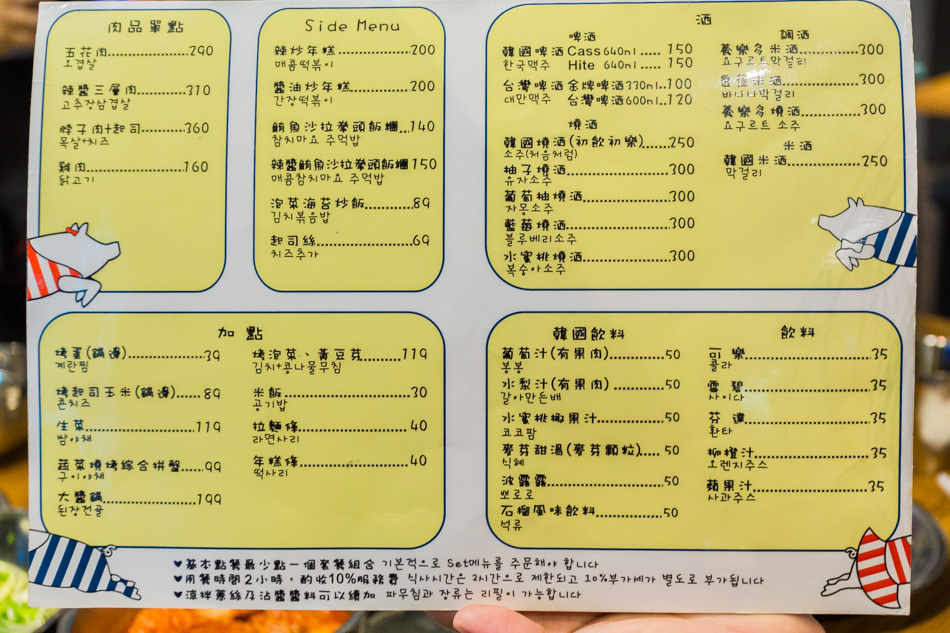 肉品單點
五花肉 290
오겹살
辣醬三層肉 310
고추장삼겹살
脖子肉+起司 360
목살+치즈
雞肉 160
닭고기
Side Menu
辣炒年糕 200
매콤떡볶이
醬油炒年糕 200
간장떡볶이
鮪魚沙拉拳頭飯糰 140
참치마요 주먹밥
辣醬鮪魚沙拉拳頭飯糰 150
매콤참치마요 주먹밥
泡菜海苔炒飯 89
김치볶음밥
起司絲 69
치즈추가
酒
啤酒
韓國啤酒 Cass 640ml ..... 150
한국맥주 Hite 640ml ..... 150
台灣啤酒 金牌啤酒330ml 100
대만맥주 台灣啤酒600ml 120
燒酒
韓國燒酒(初飲初樂) 250
소주(처음처럼)
柚子燒酒 300
유자소주
葡萄柚燒酒 300
자몽소주
藍莓燒酒 300
블루베리소주
水蜜桃燒酒 300
복숭아소주
調酒
養樂多米酒 300
요구르트막걸리
香蕉米酒 300
바나나막걸리
養樂多燒酒 300
요구르트 소주
米酒
韓國米酒 250
막걸리
加點
烤蛋(鍋邊) 39
계란찜
烤起司玉米(鍋邊) 89
콘치즈
生菜 119
쌈야채
蔬菜燒烤綜合拼盤 99
구이야채
大醬鍋 199
된장전골
烤泡菜、黃豆芽 119
김치+콩나물무침
米飯 30
공기밥
拉麵條 40
라면사리
年糕條 40
떡사리
韓國飲料
葡萄汁(有果肉) 50
봉봉
水梨汁(有果肉) 50
갈아만든배
水蜜桃椰果汁 50
코코팜
麥芽甜湯(麥芽顆粒) 50
식혜
波露露 50
뽀로로
石榴風味飲料 50
석류
飲料
可樂 35
콜라
雪碧 35
사이다
芬達 35
환타
柳橙汁 35
오렌지주스
蘋果汁 35
사과주스
♥基本點餐最少點一個套餐組合 기본적으로 Set메뉴를 주문해야 합니다
♥用餐時間2小時,酌收10%服務費 식사시간은 2시간으로 제한되고 10%부가세가 별도로 부가됩니다
♥涼拌蔥絲及沾醬醬料可以續加 파무침과 장류는 리필이 가능합니다